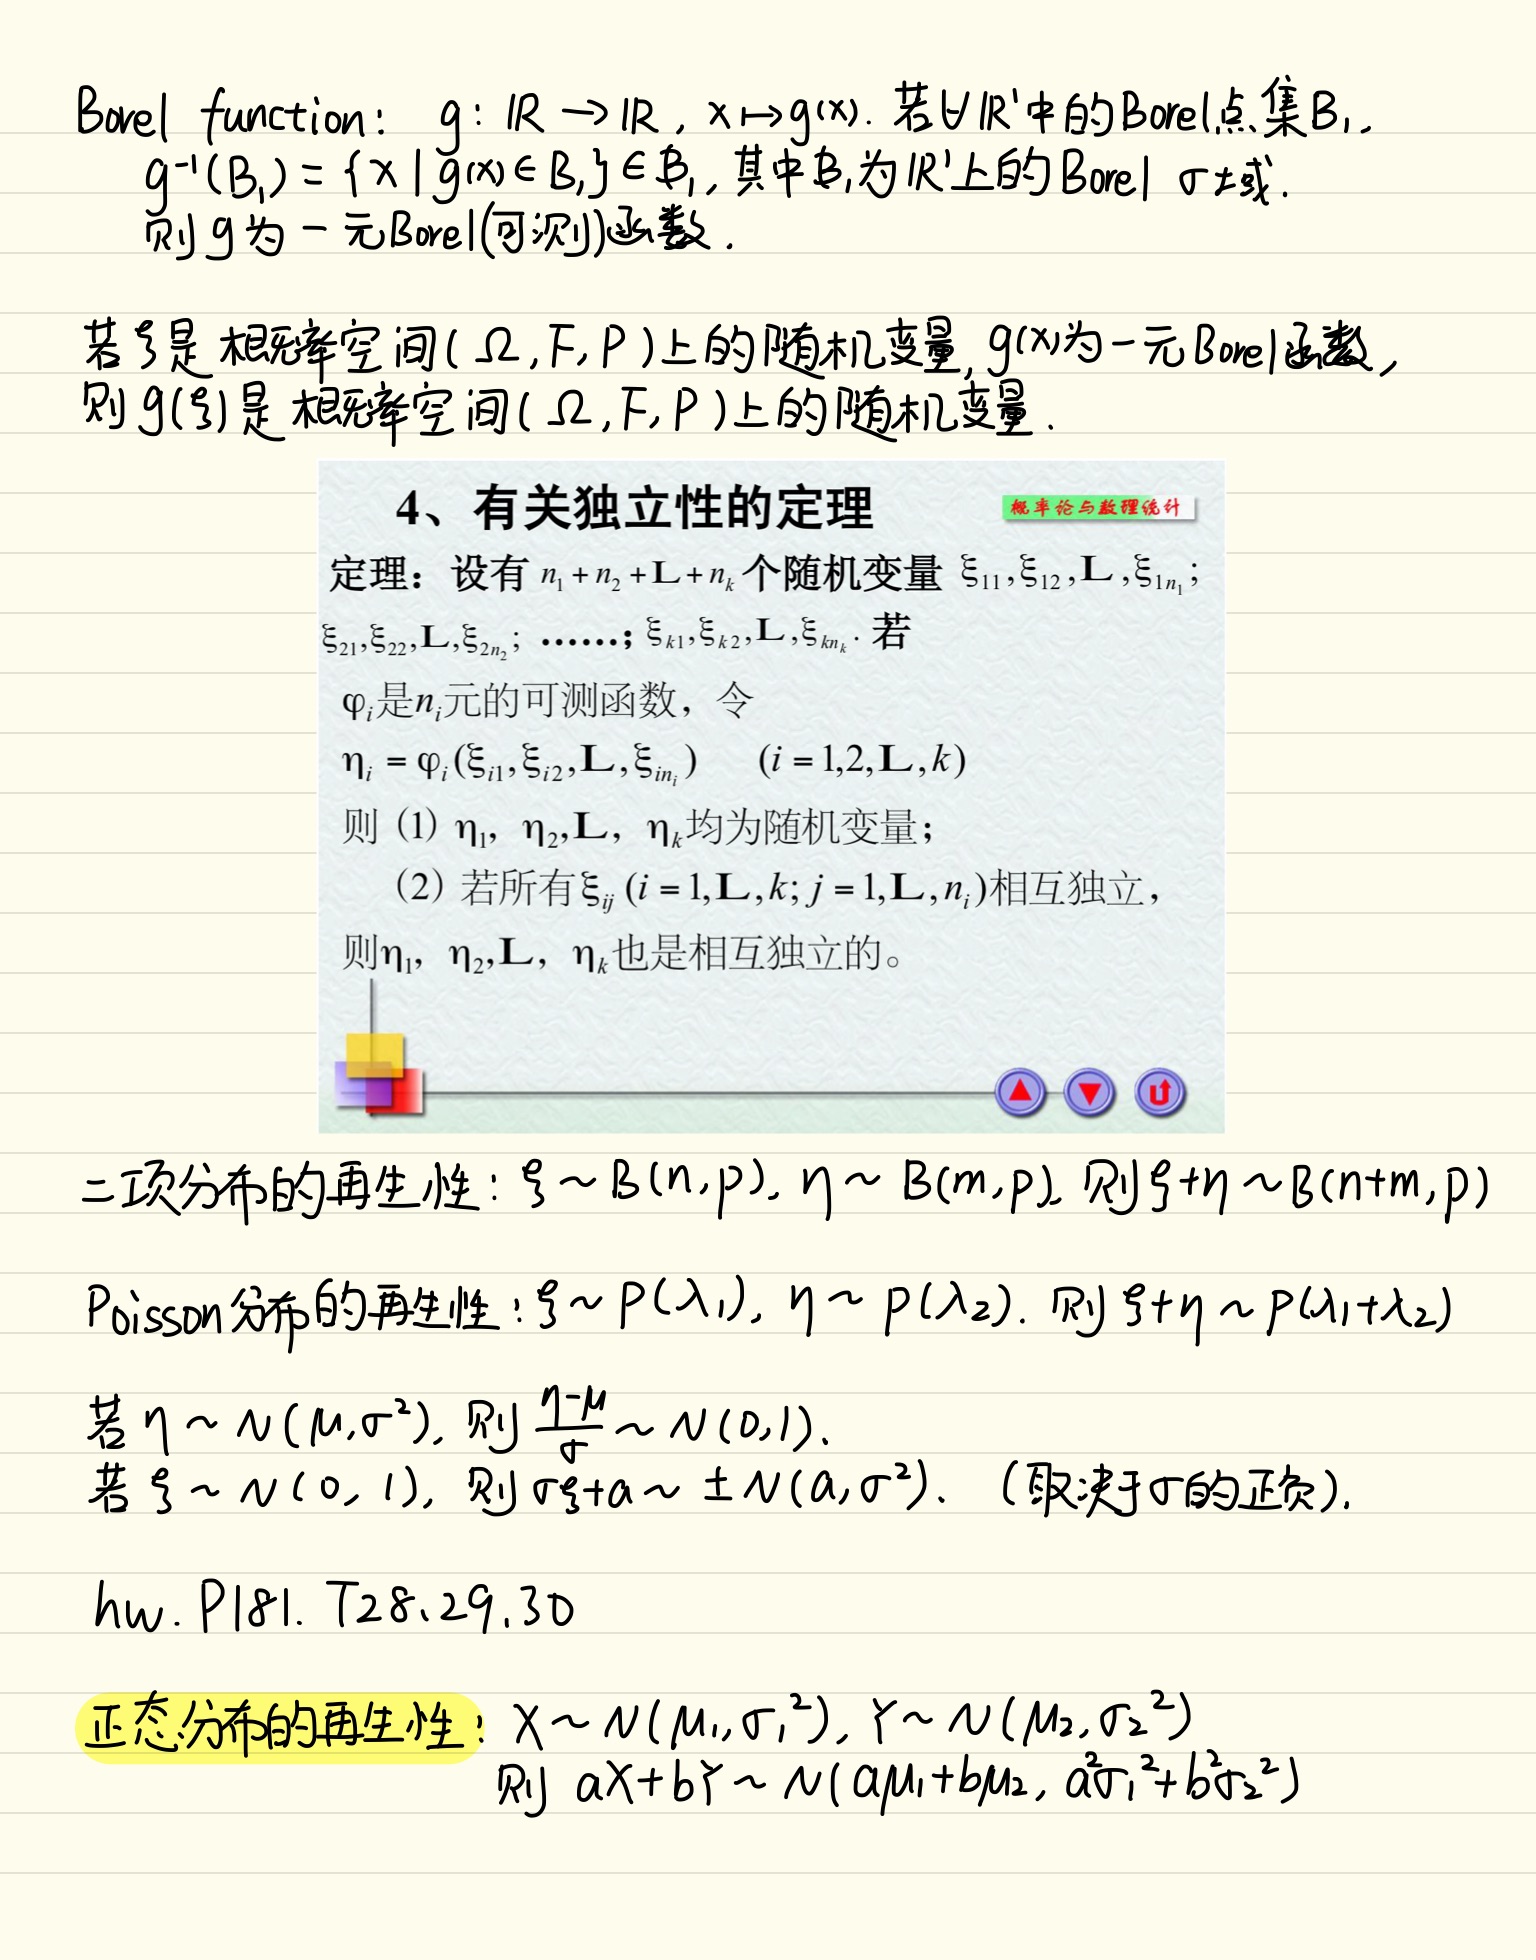 Borel function: g: ℝ → ℝ, x ↦ g(x). 若∀ℝ¹中的Borel点集B₁,
g⁻¹(B₁) = {x | g(x) ∈ B₁} ∈ ℬ₁, 其中ℬ₁为ℝ¹上的Borel σ域.
则g为一元Borel(可测)函数.
若ξ是概率空间(Ω, F, P)上的随机变量, g(x)为一元Borel函数,
则g(ξ)是概率空间(Ω, F, P)上的随机变量.
4、有关独立性的定理
概率论与数理统计
定理：设有 n₁ + n₂ + L + nₖ 个随机变量 ξ₁₁, ξ₁₂, L, ξ₁ₙ₁;
ξ₂₁, ξ₂₂, L, ξ₂ₙ₂; ……; ξₖ₁, ξₖ₂, L, ξₖₙₖ. 若
φᵢ是nᵢ元的可测函数，令
ηᵢ = φᵢ(ξᵢ₁, ξᵢ₂, L, ξᵢₙᵢ) (i = 1,2, L, k)
则（1）η₁，η₂, L，ηₖ均为随机变量；
（2）若所有ξᵢⱼ (i = 1, L, k; j = 1, L, nᵢ)相互独立，
则η₁，η₂, L，ηₖ也是相互独立的。
二项分布的再生性: ξ ~ B(n,p), η ~ B(m,p). 则ξ+η ~ B(n+m, p)
Poisson分布的再生性: ξ ~ P(λ₁), η ~ P(λ₂). 则 ξ+η ~ P(λ₁+λ₂)
若 η ~ N(μ,σ²), 则 (η-μ)/σ ~ N(0,1).
若 ξ ~ N(0, 1), 则 σξ+a ~ ±N(a,σ²). (取决于σ的正负).
hw. P181. T28、29、30
正态分布的再生性: X ~ N(μ₁,σ₁²), Y ~ N(μ₂,σ₂²)
则 aX+bY ~ N(aμ₁+bμ₂, a²σ₁²+b²σ₂²)